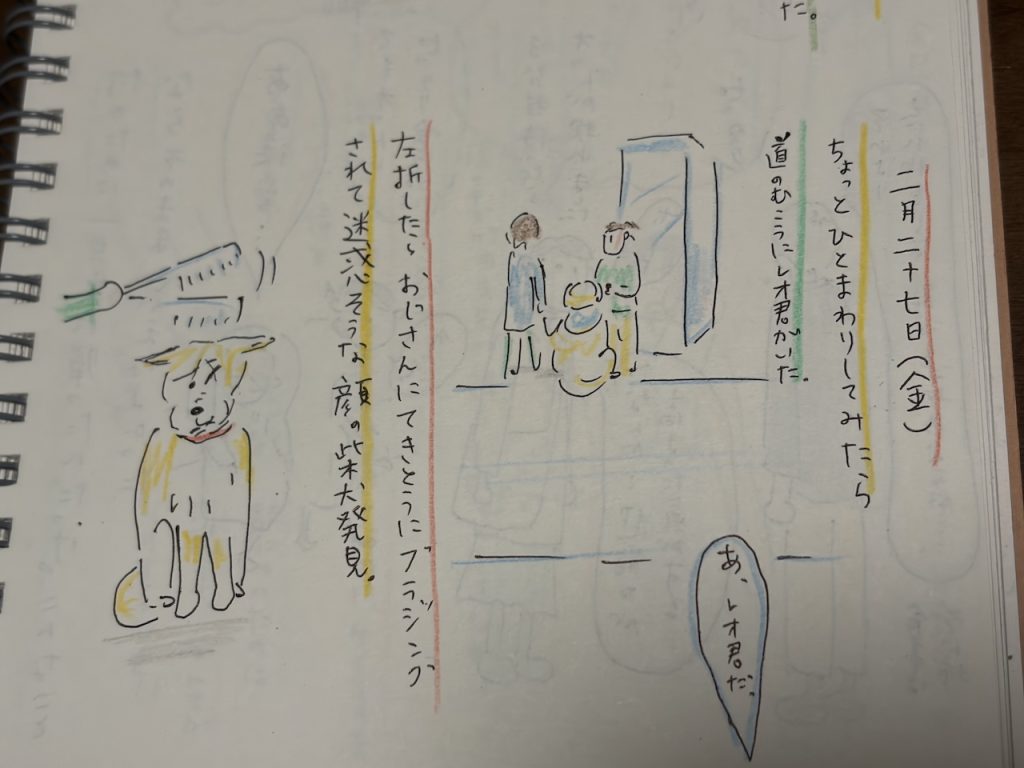 た。
二月二十七日(金)
ちょっとひとまわりしてみたら
道のむこうにレオ君がいた。
あ、レオ君だ。
左折したらおじさんにてきとうにブラッシング
されて迷惑そうな顔の柴犬発見。